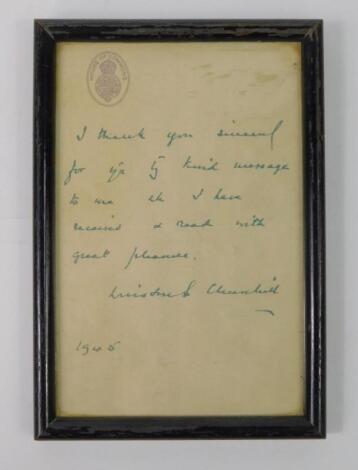 HOUSE OF COMMONS
I thank you sincerely
for yr kind message
to me wh I have
received & read with
great pleasure.
Winston S. Churchill
1945